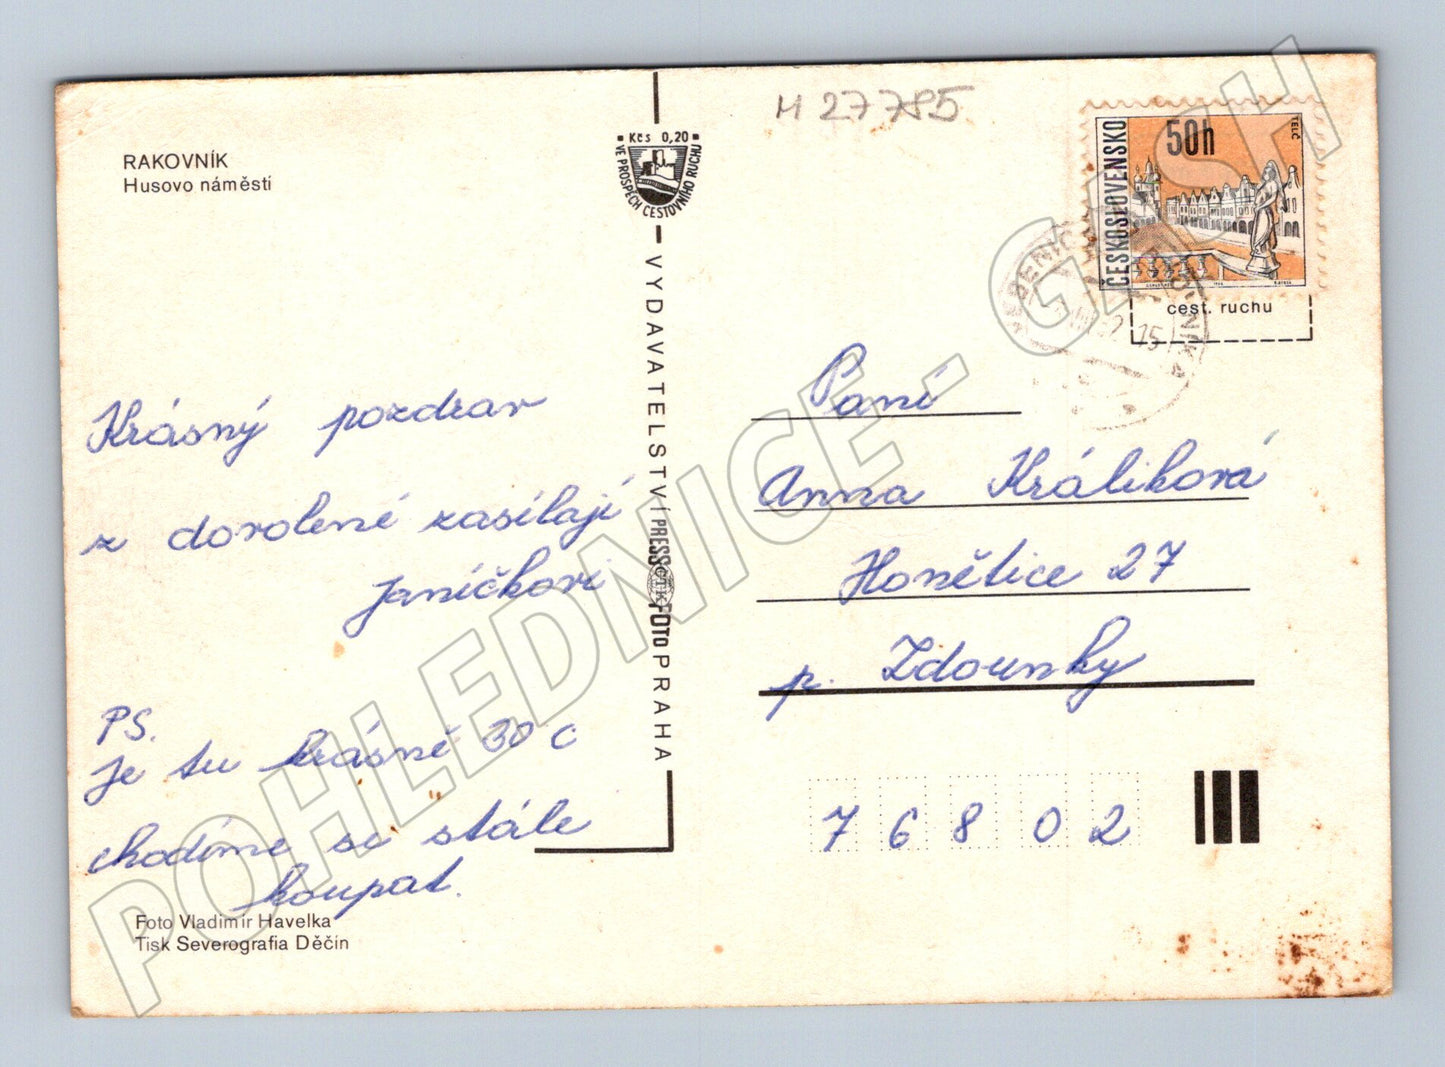 RAKOVNÍK
Husovo náměstí
Krásný pozdrav
z dovolené zasílají
Janíčkovi
PS.
Je tu krásně 30 C
chodíme se stále
koupat.
Foto Vladimír Havelka
Tisk Severografia Děčín
Kčs 0,20
VE PROSPĚCH CESTOVNÍHO RUCHU
VYDAVATELSTVÍ PRESSFOTO PRAHA
ČTK
M 27785
ČESKOSLOVENSKO
50h
TELČ
cest. ruchu
Paní
Anna Králíková
Honětice 27
p. Zdounky
76802
POHLEDNICE - GASH